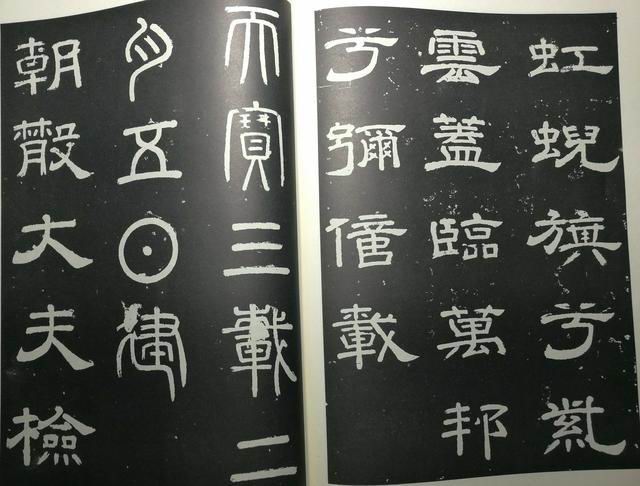 虹蜺旗兮紫
雲蓋臨萬邦
兮彌億載
天寶三載二
月五日建
朝散大夫檢